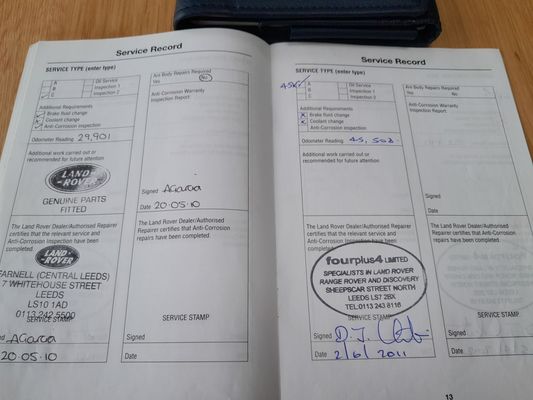 Service Record
SERVICE TYPE (enter type)
A
B
C
Oil Service
Inspection 1
Inspection 2
Additional Requirements
Brake fluid change
Coolant change
Anti-Corrosion inspection
Odometer Reading 29,901
Additional work carried out or
recommended for future attention
LAND-
ROVER
GENUINE PARTS
FITTED
The Land Rover Dealer/Authorised
Repairer certifies that the
relevant service and
Anti-Corrosion Inspection have been
completed.
LAND-
ROVER
FARNELL (CENTRAL LEEDS)
7 WHITEHOUSE STREET
LEEDS
LS10 1AD
0113 242 5500
SERVICE STAMP
Signed AGarcia
20.05.10
Are Body Repairs Required
Yes No
Anti-Corrosion Warranty
Inspection Report
Signed AGarcia
Date 20.05.10
The Land Rover Dealer/Authorised
Repairer certifies that Anti-Corrosion
repairs have been completed.
SERVICE STAMP
Signed
Date
Service Record
SERVICE TYPE (enter type)
45K
A
B
C
Oil Service
Inspection 1
Inspection 2
Additional Requirements
Brake fluid change
Coolant change
Anti-Corrosion inspection
Odometer Reading 45,508
Additional work carried out or
recommended for future attention
The Land Rover Dealer/Authorised Repairer
certifies that the relevant service and
Anti-Corrosion Inspection have been
completed.
fourplus4 LIMITED
SPECIALISTS IN LAND ROVER
RANGE ROVER AND DISCOVERY
SHEEPSCAR STREET NORTH
LEEDS LS7 2BX
TEL:0113 243 8116
SERVICE STAMP
Signed
Date 2/6/2011
Are Body Repairs Required
Yes No
Anti-Corrosion Warranty
Inspection Report
Signed
Date
The Land Rover Dealer/Authorised
Repairer certifies that Anti-Corrosion
repairs have been completed.
SERVICE STAMP
Signed
Date
13